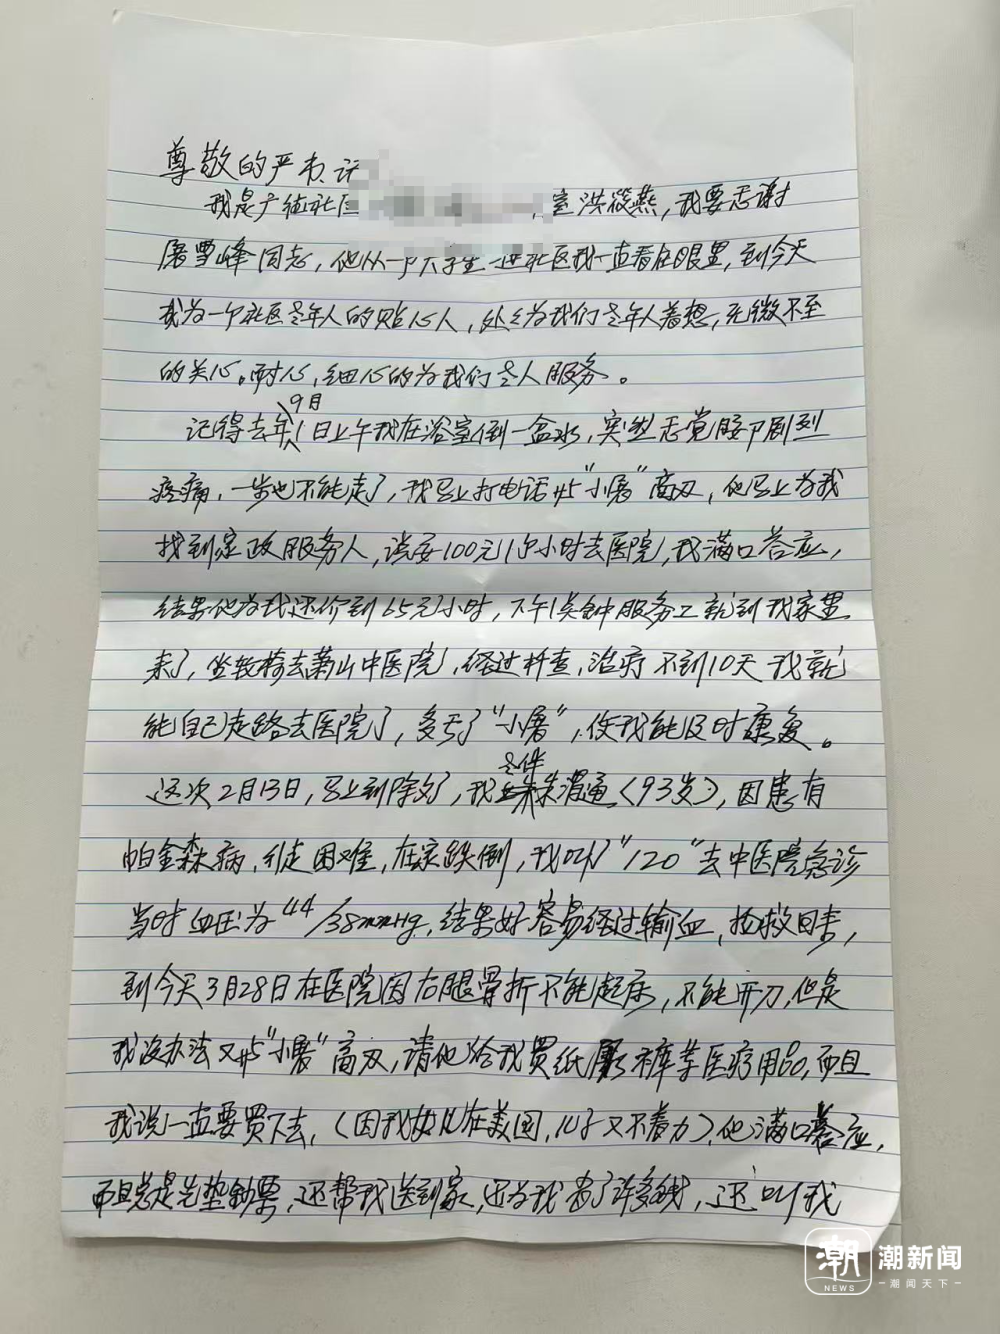 尊敬的严书记
我是广德社区 室洪筱燕，我要感谢
屠雪峰同志，他从一个大学生进社区我一直看在眼里，到今天
成为一个社区老年人的贴心人，处处为我们老年人着想，无微不至
的关心。耐心，细心的为我们老人服务。
记得去年9月1日上午我在浴室倒一盆水，突然感觉腰部剧烈
疼痛，一步也不能走了，我马上打电话与“小屠”商议，他马上为我
找到家政服务人，谈妥100元1个小时去医院，我满口答应，
结果他为我还价到65元/小时，下午1点钟服务工就到我家里
来了，坐轮椅去萧山中医院，经过检查，治疗不到10天我就
能自己走路去医院了，多亏了“小屠”，使我能及时康复。
这次2月13日，马上到除夕了，我老伴朱渭通（93岁），因患有
帕金森病，行走困难，在家跌倒，我叫“120”去中医院急诊
当时血压为44/38mmHg，结果好容易经过输血，抢救回来，
到今天3月28日在医院因右腿骨折不能起床，不能开刀，但是
我没办法又与“小屠”商议，请他给我买纸尿裤等医疗用品，而且
我说一直要买下去，（因我女儿在美国，儿子又不着力），他满口答应，
而且总是先垫钞票，还帮我送到家，还为我省了许多钱，还叫我
潮 潮新闻
NEWS 潮闻天下